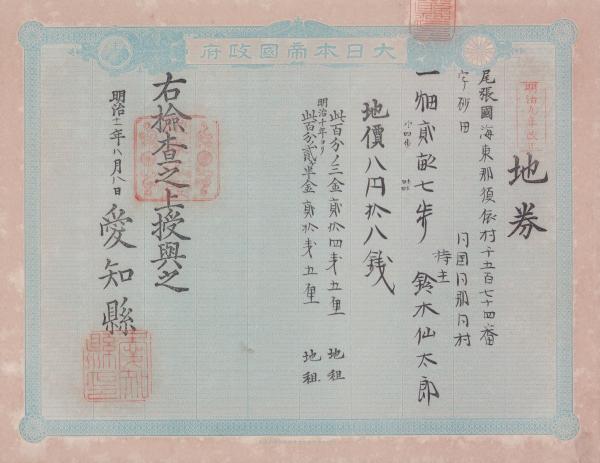 大日本帝國政府
明治九年改正
地券
尾張國海東郡須依村千五百七十四番
字砂田
同国同郡同村
一畑貳畝七歩
持主 鈴木仙太郎
地價八円拾八銭
此百分ノ三金貳拾四銭五厘 地租
明治十年ヨリ
此百分ノ貳半金貳拾銭五厘 地租
右檢査之上授與之
明治十一年八月八日
愛知縣
愛知縣印